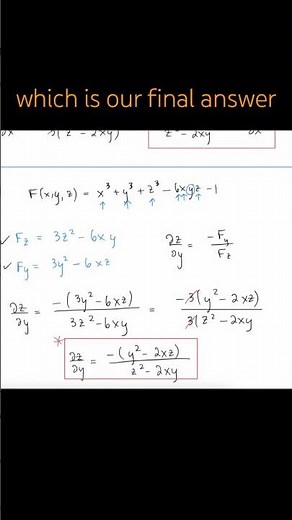 which is our final answer
∂x 3(z² - 2xy) z² - 2xy ∂x
F(x,y,z) = x³ + y³ + z³ - 6xyz - 1
✓ F_z = 3z² - 6xy
∂z/∂y = -F_y/F_z
✓ F_y = 3y² - 6xz
∂z/∂y = -(3y² - 6xz)/3z² - 6xy = -3(y² - 2xz)/3(z² - 2xy)
* ∂z/∂y = -(y² - 2xz)/z² - 2xy